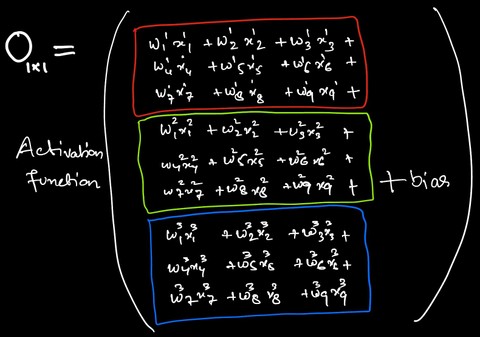 O₁ₓ₁ =
Activation
Function
w₁¹x₁¹ + w₂¹x₂¹ + w₃¹x₃¹ +
w₄¹x₄¹ + w₅¹x₅¹ + w₆¹x₆¹ +
w₇¹x₇¹ + w₈¹x₈¹ + w₉¹x₉¹ +
w₁²x₁² + w₂²x₂² + w₃²x₃² +
w₄²x₄² + w₅²x₅² + w₆²x₆² +
w₇²x₇² + w₈²x₈² + w₉²x₉² +
w₁³x₁³ + w₂³x₂³ + w₃³x₃³ +
w₄³x₄³ + w₅³x₅³ + w₆³x₆³ +
w₇³x₇³ + w₈³x₈³ + w₉³x₉³
+ bias